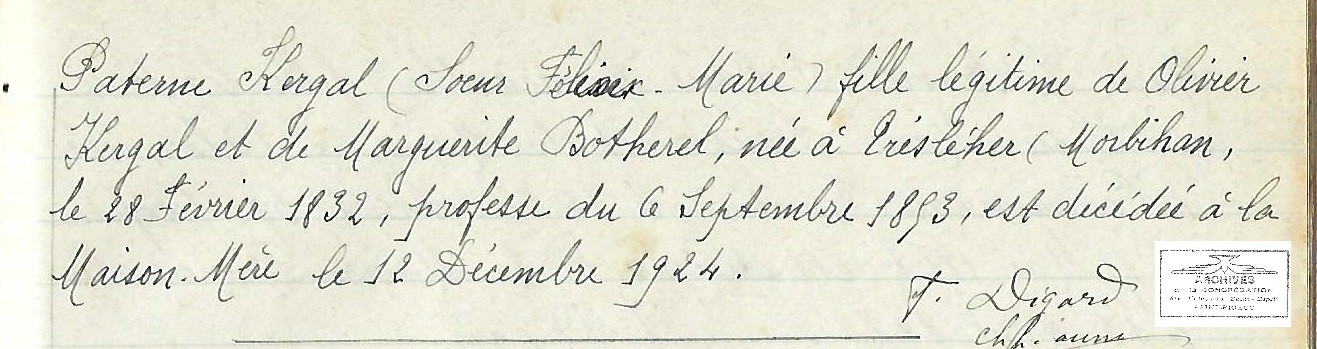 Paterne Kergal (Soeur Félicix - Marie) fille légitime de Olivier
Kergal et de Marguerite Botherel, née à Trésléher (Morbihan,
le 28 Février 1832, professe du 6 Septembre 1853, est décédée à la
Maison-Mère le 12 Décembre 1924.
F. Digard
ch. h. aum
ARCHIVES
DE LA CONGRÉGATION
SAINT-BRIEUC